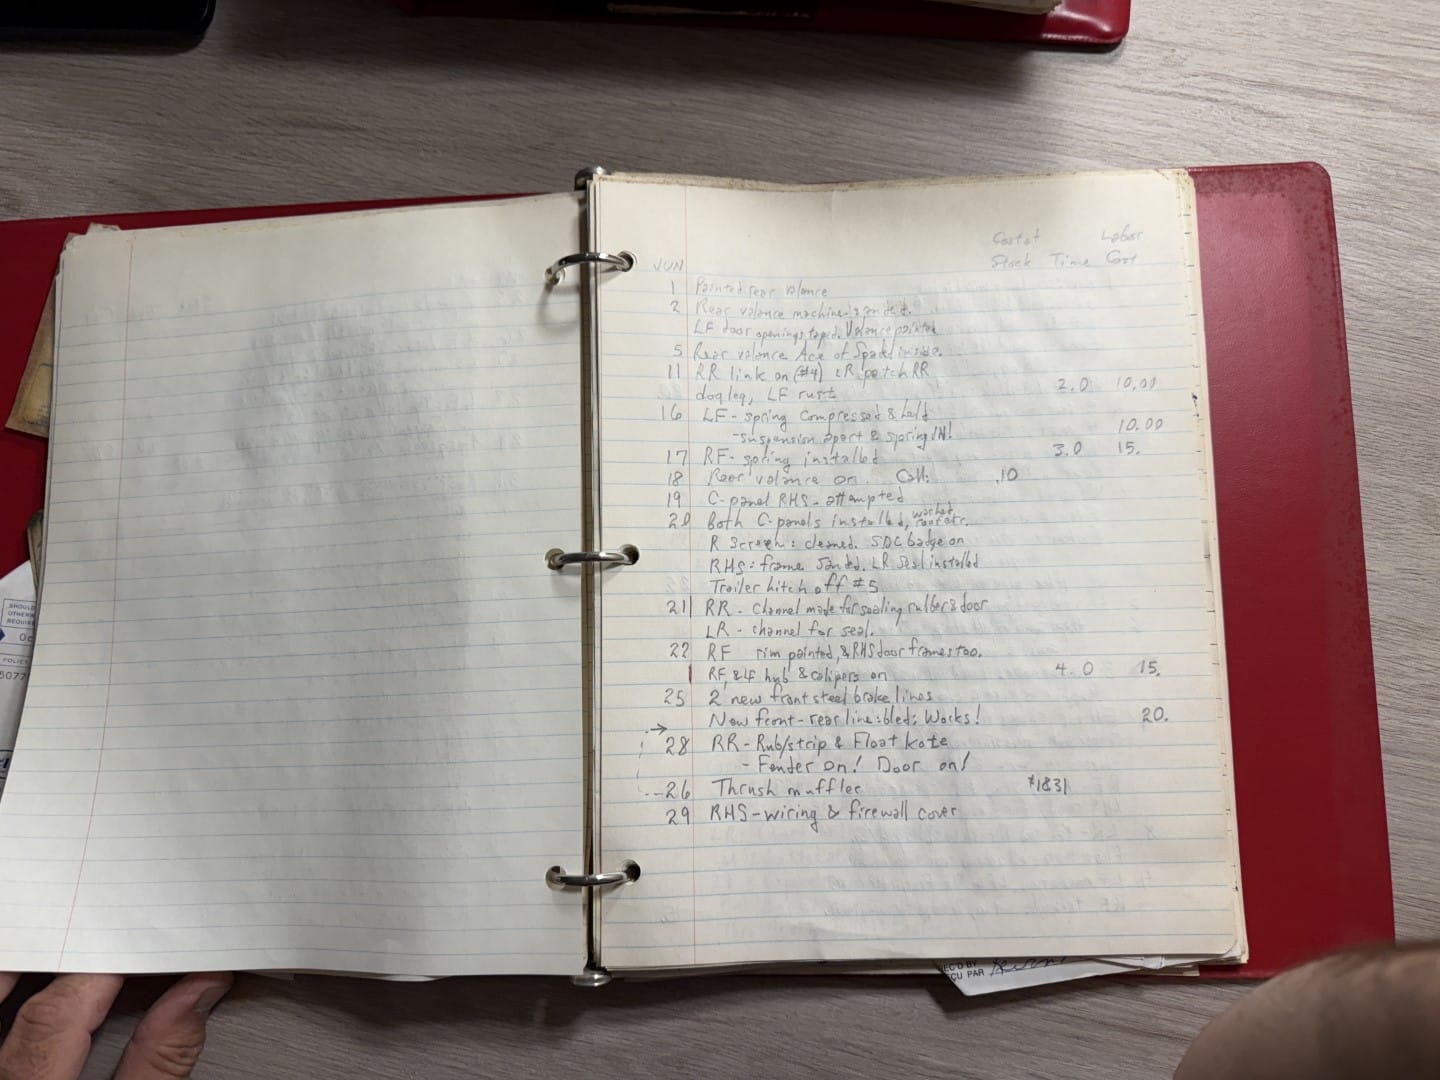 Cost of Labor
JUN Stock Time Cost
1 Painted rear valance
2 Rear valance machine-sanded.
LF door openings taped. Valance painted
5 Rear valance Ace of Spades inside.
11 RR link on (#4) LR patch RR
dog leg, LF rust 2.0 10.00
16 LF - spring compressed & held
- suspension apart & spring IN! 10.00
17 RF - spring installed 3.0 15.
18 Rear valance on. Call: .10
19 C-panel RHS - attempted
20 Both C-panels installed, washed, roof etc.
R Screen: cleaned. SDC badge on
RHS: frame sanded. LR seal installed
Trailer hitch off #5
21 RR - Channel made for sealing rubber & door
LR - channel for seal.
22 RF rim painted, & RHS door frames too.
RF, & LF hub & calipers on 4.0 15.
25 2 new front steel brake lines
New front-rear line: bled: Works! 20.
28 RR - Rub/strip & Float kote
- Fender on! Door on!
26 Thrush muffler $1831
29 RHS - wiring & firewall cover
SHOULD
OTHER
REQUIRE
POLIC
5077
EC'D BY
ÇU PAR